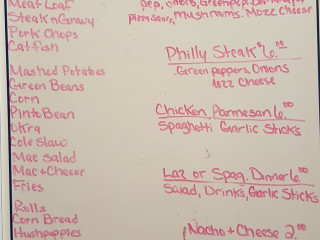 Meat Loaf
Steak n Gravy
Pork Chops
Catfish
Mashed Potatoes
Green Beans
Corn
Pinto Bean
Okra
Cole Slaw
Mac Salad
Mac + Cheese
Fries
Rolls
Corn Bread
Hushpuppies
pep, onions, Greenpep,
pizza sauce, mushrooms. Mozz Cheese
Philly Steak $6.00
Green peppers, Onions
Mozz Cheese
Chicken Parmesan 6.00
Spaghetti Garlic Sticks
Laz or Spag. Dinner 6.00
Salad, Drinks, Garlic Sticks
Nacho + Cheese 2.00